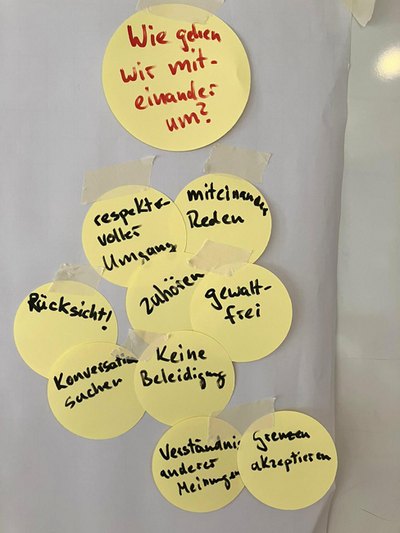 Wie gehen
wir mit-
einander
um?
respekt-
voller
Umgang
miteinander
Reden
zuhören
gewalt-
frei
Rücksicht!
Konversation
suchen
Keine
Beleidigung
Verständnis
anderer
Meinungen
Grenzen
akzeptieren